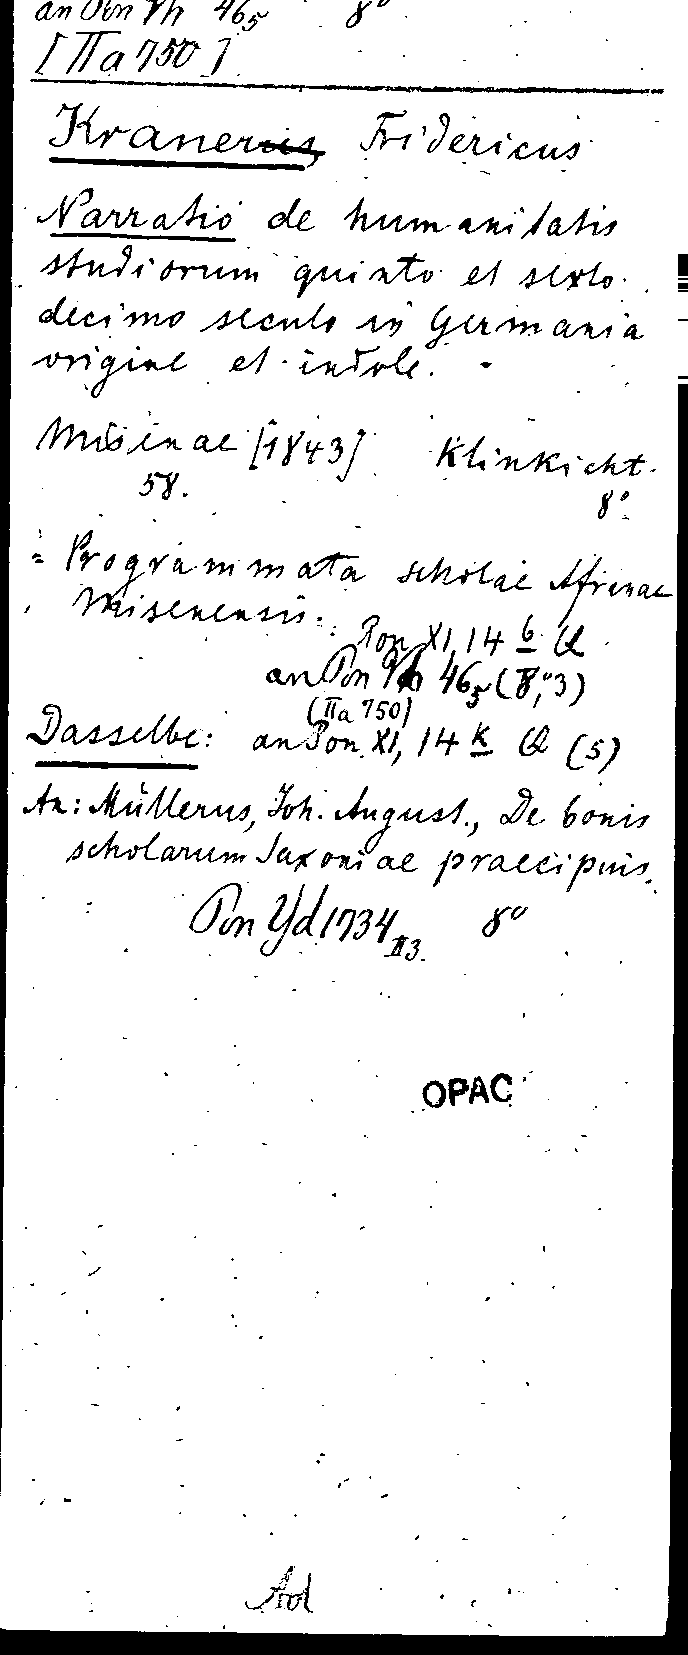 an Pon Yh 46₅ 8°
[IIa 750]
Kranerus, Fridericus
Narratio de humanitatis
studiorum quinto et sexto
decimo seculo in Germania
origine et indole.
Misenae [1843] Klinkicht.
58. 8°
= Programmata scholae Afranae
Misenensis.
Pon XI, 14 b Q
an Pon Yh 46₅ (8°, 3)
(IIa 750)
Dasselbe: an Pon XI, 14 k Q (5)
An: Müllerus, Joh. August., De bonis
scholarum Saxoniae praecipuis.
Pon Yd 1734 II3. 8°
OPAC